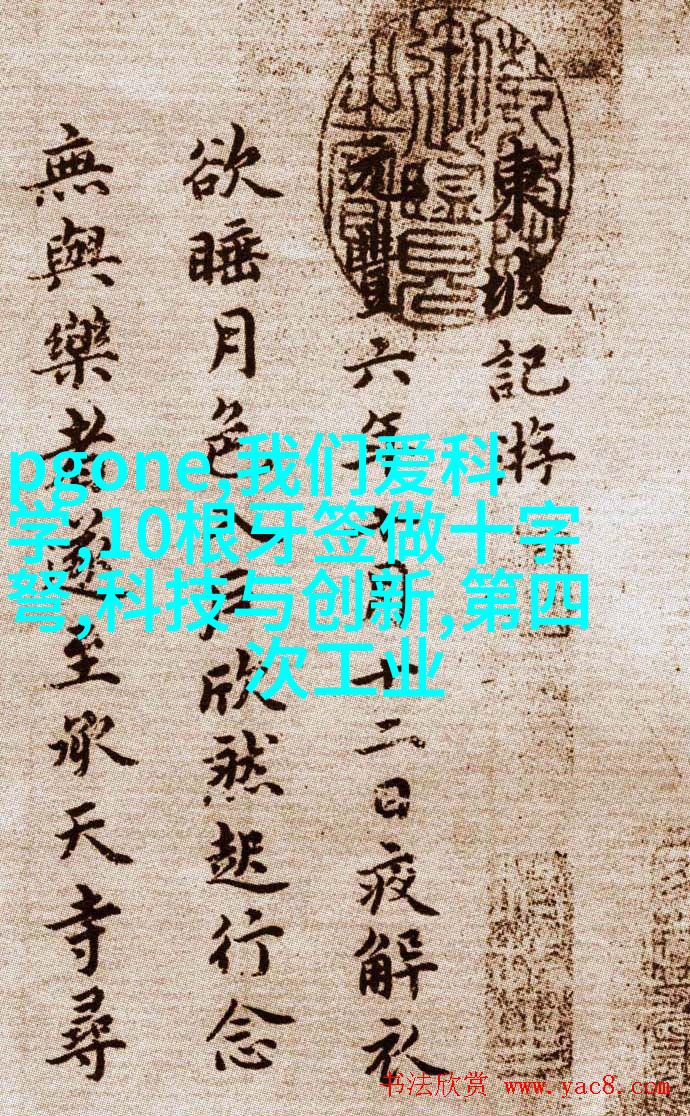 東坡記
元豐六年月十二日夜解衣
欲睡月色入戶欣然起行念
無與樂者遂至承天寺尋
pgone,我们爱科
学,10根牙签做十字
弩,科技与创新,第四
次工业
书法欣赏 www.yac8.com